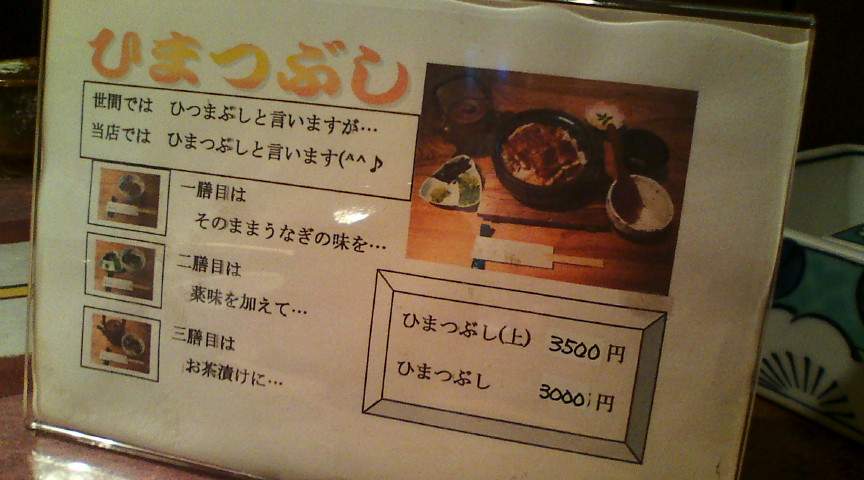 ひまつぶし
世間では ひつまぶしと言いますが…
当店では ひまつぶしと言います(^^♪
一膳目は
そのままうなぎの味を…
二膳目は
薬味を加えて…
三膳目は
お茶漬けに…
ひまつぶし(上) 3500円
ひまつぶし 3000円